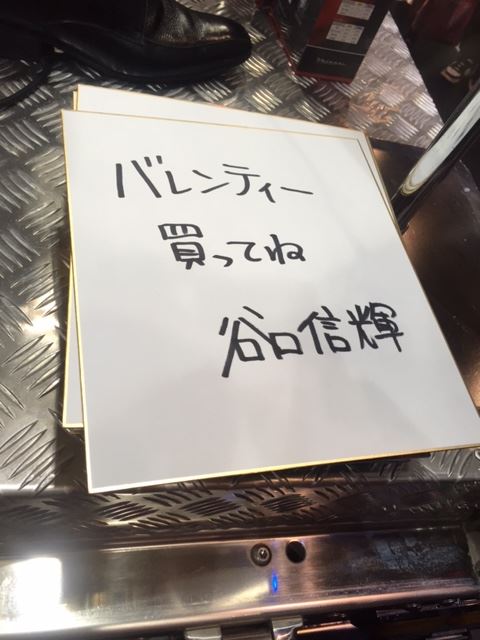 バレンティー
買ってね
谷口信輝